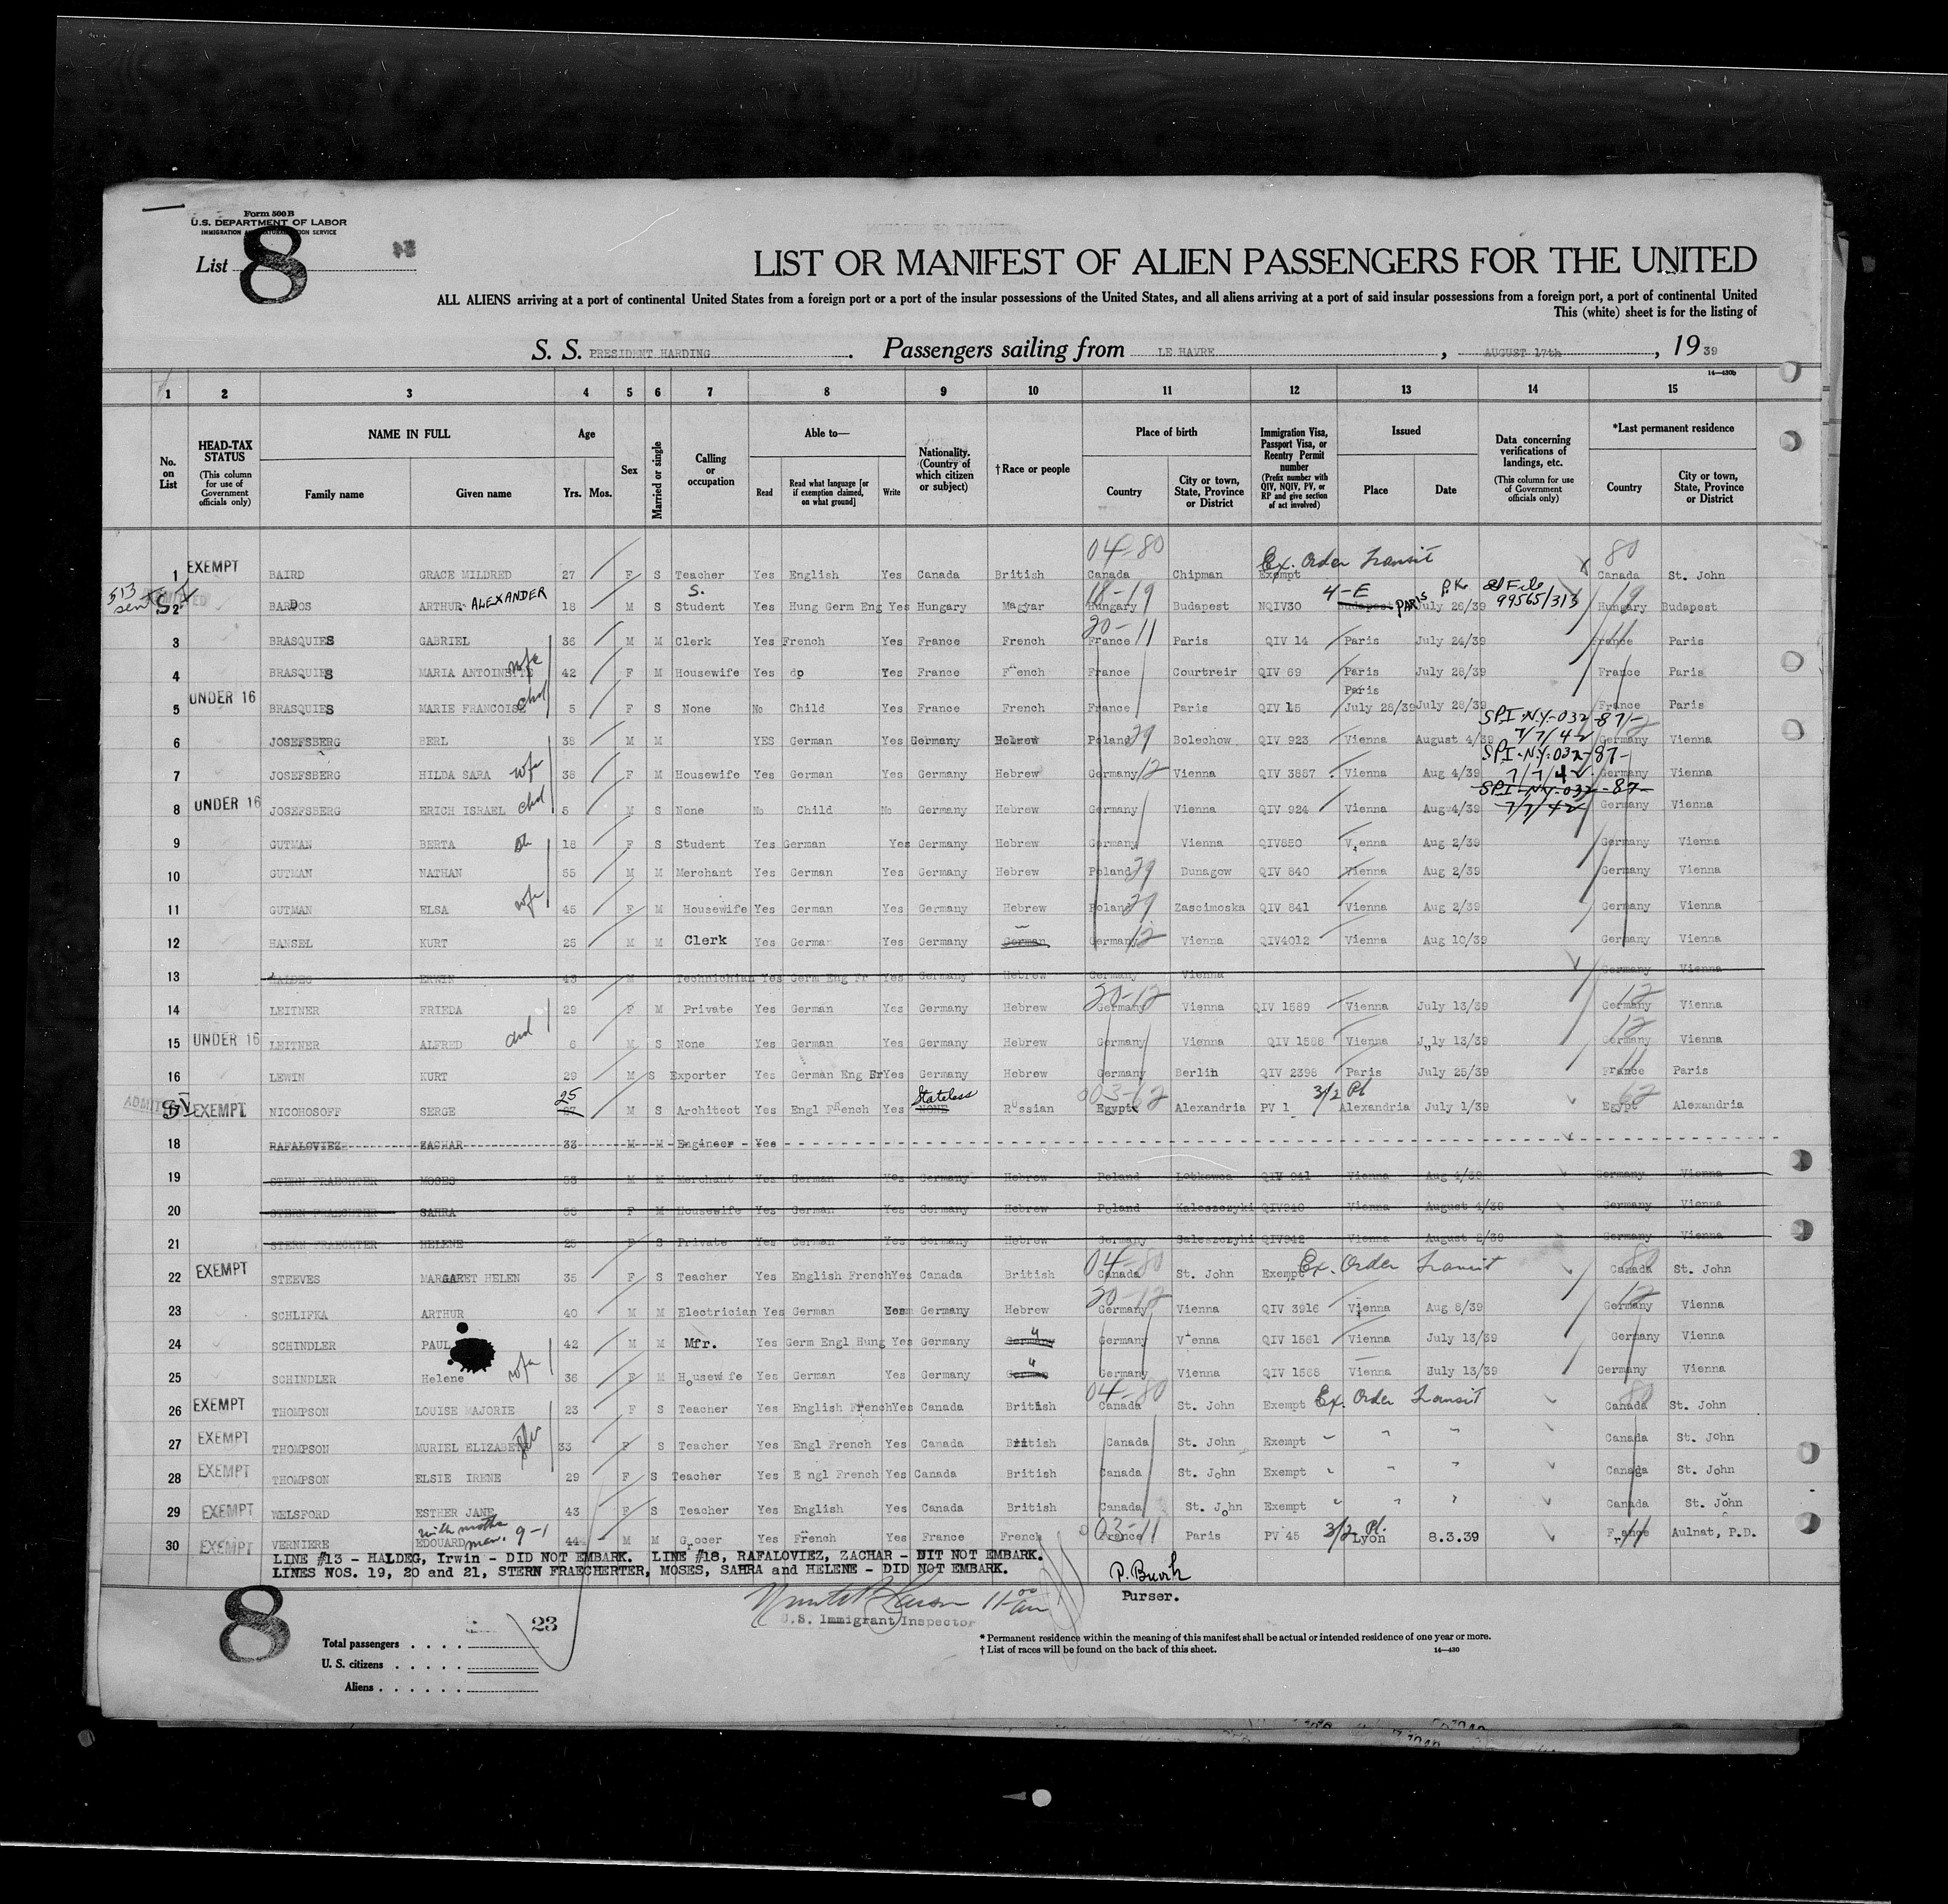 Form 500 B
U.S. DEPARTMENT OF LABOR
IMMIGRATION AND NATURALIZATION SERVICE
List 8
LIST OR MANIFEST OF ALIEN PASSENGERS FOR THE UNITED
ALL ALIENS arriving at a port of continental United States from a foreign port or a port of the insular possessions of the United States, and all aliens arriving at a port of said insular possessions from a foreign port, a port of continental United
This (white) sheet is for the listing of
S. S. PRESIDENT HARDING. Passengers sailing from LE HAVRE, AUGUST 17th, 1939
14—430b
1 2 3 4 5 6 7 8 9 10 11 12 13 14 15
No. on List
HEAD-TAX STATUS (This column for use of Government officials only)
NAME IN FULL Family name Given name
Age Yrs. Mos.
Sex
Married or single
Calling or occupation
Able to— Read Read what language [or if exemption claimed, on what ground] Write
Nationality. (Country of which citizen or subject)
†Race or people
Place of birth Country City or town, State, Province or District
Immigration Visa, Passport Visa, or Reentry Permit number (Prefix number with QIV, NQIV, PV, or RP and give section of act involved)
Issued Place Date
Data concerning verifications of landings, etc. (This column for use of Government officials only)
*Last permanent residence Country City or town, State, Province or District
04-80 Ex. Order Transit 80
1 EXEMPT BAIRD GRACE MILDRED 27 F S Teacher Yes English Yes Canada British Canada Chipman Exempt Canada St. John
513 sent S. 18-19 4-E 99565/313 19
2 BARDOS ARTHUR ALEXANDER 18 M S Student Yes Hung Germ Eng Yes Hungary Magyar Hungary Budapest NQIV30 Budapest PARIS July 26/39 Hungary Budapest
20-11 11
3 BRASQUIES GABRIEL 36 M M Clerk Yes French Yes France French France Paris QIV 14 Paris July 24/39 France Paris
4 BRASQUIES MARIA ANTOINETTE wfe 42 F M Housewife Yes do Yes France French France Courtreir QIV 69 Paris July 28/39 France Paris
Paris
5 UNDER 16 BRASQUIES MARIE FRANCOISE chd 5 F S None No Child Yes France French France Paris QIV 15 July 28/39 July 28/39 France Paris
SPI-N.Y.-032-87-
7/7/42
6 JOSEFSBERG BERL 38 M M YES German Yes Germany Hebrew Poland 29 Bolechow QIV 923 Vienna August 4/39 Germany Vienna
SPI-N.Y.-032-87-
7/7/42
7 JOSEFSBERG HILDA SARA wfe 38 F M Housewife Yes German Yes Germany Hebrew Germany 12 Vienna QIV 3887 Vienna Aug 4/39 Germany Vienna
SPI-NY-032-87-
7/7/42
8 UNDER 16 JOSEFSBERG ERICH ISRAEL chd 5 M S None No Child No Germany Hebrew Germany Vienna QIV 924 Vienna Aug 4/39 Germany Vienna
9 GUTMAN BERTA 18 F S Student Yes German Yes Germany Hebrew Germany Vienna QIV850 Vienna Aug 2/39 Germany Vienna
10 GUTMAN NATHAN 55 M M Merchant Yes German Yes Germany Hebrew Poland 29 Dunagow QIV 840 Vienna Aug 2/39 Germany Vienna
11 GUTMAN ELSA wfe 45 F M Housewife Yes German Yes Germany Hebrew Poland 29 Zascimoska QIV 841 Vienna Aug 2/39 Germany Vienna
12 HANSEL KURT 25 M M Clerk Yes German Yes Germany German Germany 12 Vienna QIV4012 Vienna Aug 10/39 Germany Vienna
13 ERWIN 43 M Technichian Yes Germ Eng Fr Yes Germany Hebrew Germany Vienna Germany Vienna
20-12 12
14 LEITNER FRIEDA 29 F M Private Yes German Yes Germany Hebrew Germany Vienna QIV 1589 Vienna July 13/39 Germany Vienna
12
15 UNDER 16 LEITNER ALFRED chd 6 M S None Yes German Yes Germany Hebrew Germany Vienna QIV 1588 Vienna July 13/39 Germany Vienna
11
16 LEWIN KURT 29 M S Exporter Yes German Eng Fr Yes Germany Hebrew Germany Berlin QIV 2398 Paris July 25/39 France Paris
25 Stateless 003-62 3/2 Pl 62
17 ADMITTED EXEMPT NICOHOSOFF SERGE M S Architect Yes Engl French Yes NONE Russian Egypt Alexandria PV 1 Alexandria July 1/39 Egypt Alexandria
18 RAFALOVIEZ ZACHAR 33 M M Engineer Yes
19 STERN FRAECHTER MOSES 58 M M Merchant Yes German Yes Germany Hebrew Poland QIV 941 Vienna Aug 4/39 Germany Vienna
20 STERN FRAECHTER SAHRA F M Housewife Yes German Yes Germany Hebrew Poland Kaleszczyki QIV940 Vienna August 4/39 Germany Vienna
21 STERN FRAECHTER HELENE 25 F S Private Yes German Yes Germany Hebrew Germany Saleszczyki QIV942 Vienna Germany Vienna
04-80 Ex. Order Transit 80
22 EXEMPT STEEVES MARGARET HELEN 35 F S Teacher Yes English French Yes Canada British Canada St. John Exempt Canada St. John
20-12 12
23 SCHLIFKA ARTHUR 40 M M Electrician Yes German Yes Germany Hebrew Germany Vienna QIV 3916 Vienna Aug 8/39 Germany Vienna
24 SCHINDLER PAUL 42 M M Mfr. Yes Germ Engl Hung Yes Germany Germany Germany Vienna QIV 1561 Vienna July 13/39 Germany Vienna
25 SCHINDLER Helene wfe 36 F M Housewife Yes German Yes Germany German Germany Vienna QIV 1568 Vienna July 13/39 Germany Vienna
04-80 Ex. Order Transit 80
26 EXEMPT THOMPSON LOUISE MAJORIE 23 F S Teacher Yes English French Yes Canada British Canada St. John Exempt Canada St. John
27 EXEMPT THOMPSON MURIEL ELIZABETH 33 F S Teacher Yes Engl French Yes Canada British Canada St. John Exempt " " " Canada St. John
28 EXEMPT THOMPSON ELSIE IRENE 29 F S Teacher Yes Engl French Yes Canada British Canada St. John Exempt " " " Canada St. John
29 EXEMPT WELSFORD ESTHER JANE 43 F S Teacher Yes English Yes Canada British Canada St. John Exempt " " " Canada St. John
9-1 03-11 3/2 Pl. 11
30 EXEMPT VERNIERE EDOUARD 44 M M Grocer Yes French Yes France French France Paris PV 45 Lyon 8.3.39 France Aulnat, P.D.
LINE #13 - HALDEG, Irwin - DID NOT EMBARK. LINE #18, RAFALOVIEZ, ZACHAR - DIT NOT EMBARK.
LINES NOS. 19, 20 and 21, STERN FRAECHERTER, MOSES, SAHRA and HELENE - DID NOT EMBARK.
Purser.
11 00 am
U.S. Immigrant Inspector
8
23
Total passengers
U. S. citizens
Aliens
* Permanent residence within the meaning of this manifest shall be actual or intended residence of one year or more.
† List of races will be found on the back of this sheet. 14—430